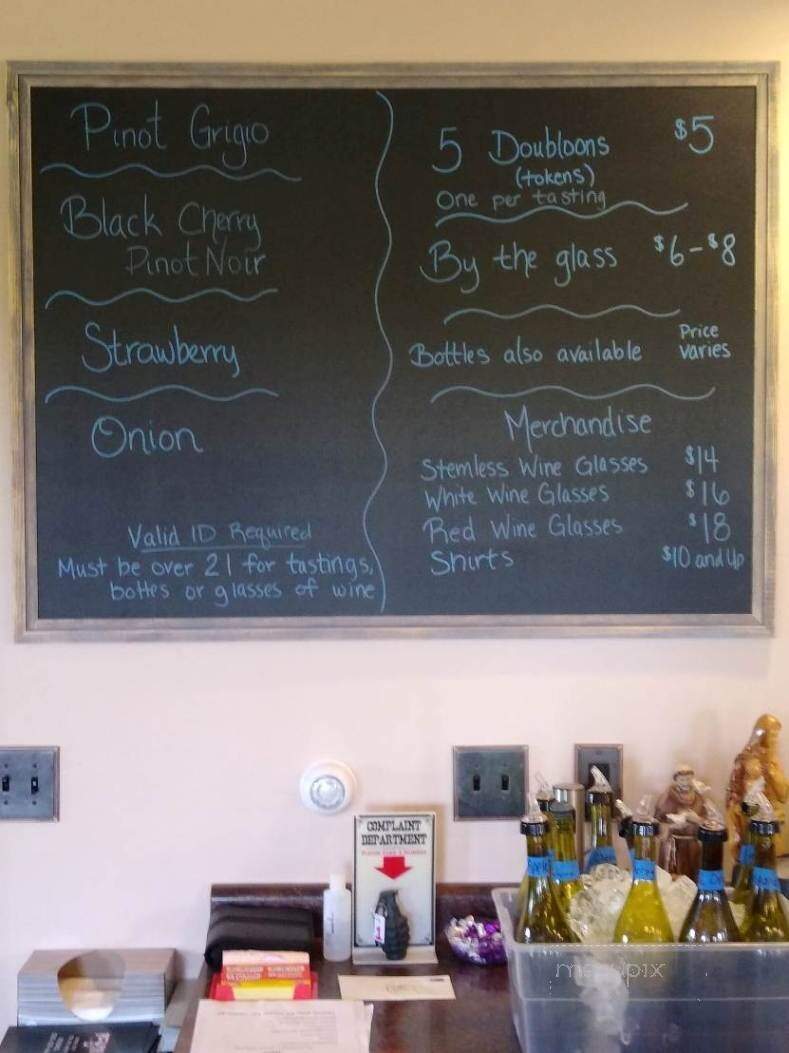 Pinot Grigio
Black Cherry
Pinot Noir
Strawberry
Onion
Valid ID Required
Must be over 21 for tastings,
bottles or glasses of wine
5 Doubloons $5
(tokens)
One per tasting
By the glass $6-$8
Bottles also available Price varies
Merchandise
Stemless Wine Glasses $14
White Wine Glasses $16
Red Wine Glasses $18
Shirts $10 and Up
COMPLAINT
DEPARTMENT